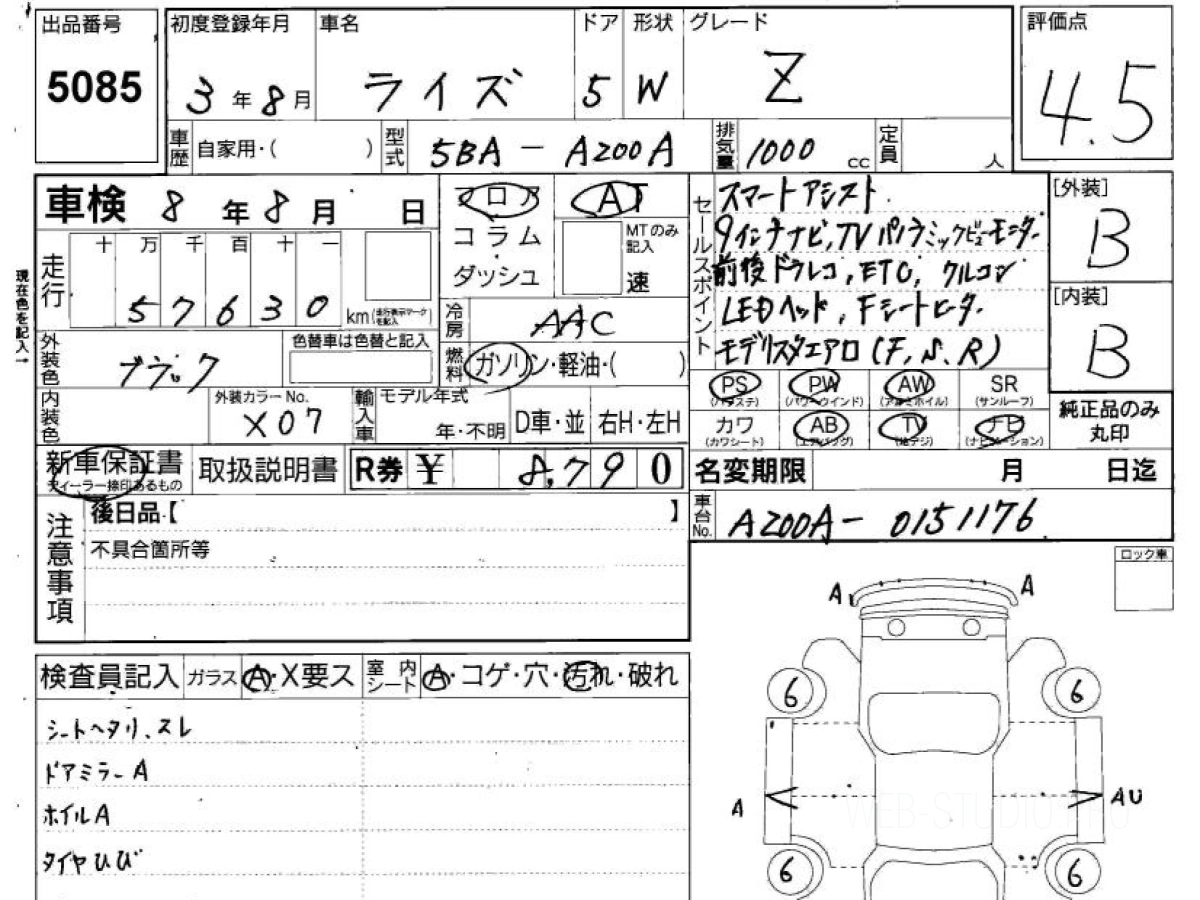 出品番号 初度登録年月 車名 ドア 形状 グレード 評価点
5085 3年8月 ライズ 5 W Z 4.5
車歴 自家用・( ) 型式 5BA - A200A 排気量 1000 cc 定員 人
車検 8年8月 日
フロア AT
コラム
ダッシュ
MTのみ記入
速
セールスポイント
スマートアシスト
9インチナビ,TV パノラミックビューモニター
前後ドラレコ,ETC,クルコン
LEDヘッド,Fシートヒーター
モデリスタエアロ(F,S,R)
[外装]
B
[内装]
B
現在色を記入→
走行 十万千百十一
57630 km (走行表示マークを記入)
冷房 AAC
外装色 ブラック 色替車は色替と記入
燃料 ガソリン・軽油・( )
内装色 外装カラーNo. X07
輸入車 モデル年式 年・不明 D車・並 右H・左H
PS (パワステ) PW (パワーウインド) AW (アルミホイル) SR (サンルーフ)
カワ (カワシート) AB (エアバッグ) TV (地デジ) ナビ (ナビゲーション)
純正品のみ丸印
新車保証書 ディーラー捺印あるもの 取扱説明書 R券 ¥ 8,790
名変期限 月 日迄
注意事項
後日品【 】
不具合箇所等
車台No. A200A-0151176
ロック車
検査員記入 ガラス A・X要ス 室内シート A・コゲ・穴・汚れ・破れ
シートヘタリ、スレ
ドアミラーA
ホイルA
タイヤひび
A A
6 6
A AU
6 6
WEB-STUDIO.PRO